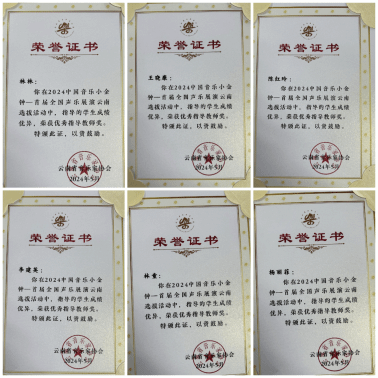 荣誉证书
林林：
你在2024中国音乐小金
钟—首届全国声乐展演云南
选拔活动中，指导的学生成绩
优异，荣获优秀指导教师奖。
特颁此证，以资鼓励。
云南省音乐家协会
2024年5月
荣誉证书
王晓雁：
你在2024中国音乐小金
钟—首届全国声乐展演云南
选拔活动中，指导的学生成绩
优异，荣获优秀指导教师奖。
特颁此证，以资鼓励。
云南省音乐家协会
2024年5月
荣誉证书
陈红玲：
你在2024中国音乐小金
钟—首届全国声乐展演云南
选拔活动中，指导的学生成绩
优异，荣获优秀指导教师奖。
特颁此证，以资鼓励。
云南省音乐家协会
2024年5月
荣誉证书
李建英：
你在2024中国音乐小金
钟—首届全国声乐展演云南
选拔活动中，指导的学生成绩
优异，荣获优秀指导教师奖。
特颁此证，以资鼓励。
云南省音乐家协会
2024年5月
荣誉证书
林霏：
你在2024中国音乐小金
钟—首届全国声乐展演云南
选拔活动中，指导的学生成绩
优异，荣获优秀指导教师奖。
特颁此证，以资鼓励。
云南省音乐家协会
2024年5月
荣誉证书
杨丽菲：
你在2024中国音乐小金
钟—首届全国声乐展演云南
选拔活动中，指导的学生成绩
优异，荣获优秀指导教师奖。
特颁此证，以资鼓励。
云南省音乐家协会
2024年5月